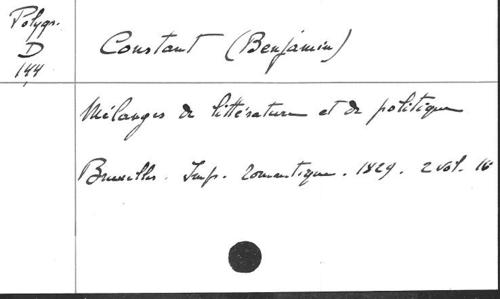 Polygr.
D
144
Constant (Benjamin)
Mélanges de littérature et de politique
Bruxelles. Imp. romantique. 1829. 2 vol. 16